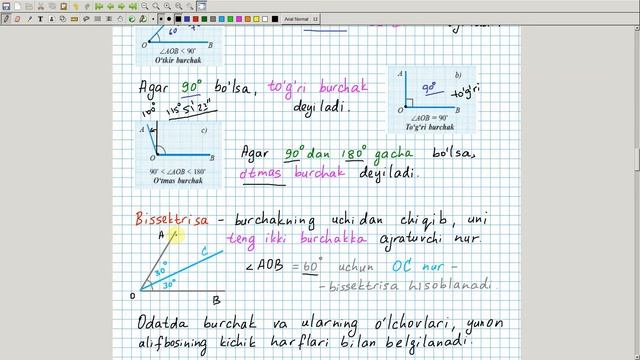 Arial Normal 12
60°
O B
∠AOB < 90°
O'tkir burchak
Agar 90° bo'lsa, to'g'ri burchak
deyiladi.
A b)
90° to'g'ri
O B
∠AOB = 90°
To'g'ri burchak
100° 115° 51' 23"
A c)
O B
90° < ∠AOB < 180°
O'tmas burchak
Agar 90° dan 180° gacha bo'lsa,
o'tmas burchak deyiladi.
Bissektrisa - burchakning uchidan chiqib, uni
teng ikki burchakka ajratuvchi nur.
A
C
30°
30°
O B
∠AOB = 60° uchun OC nur -
- bissektrisa hisoblanadi.
Odatda burchak va ularning o'lchovlari, yunon
alifbosining kichik harflari bilan belgilanadi.